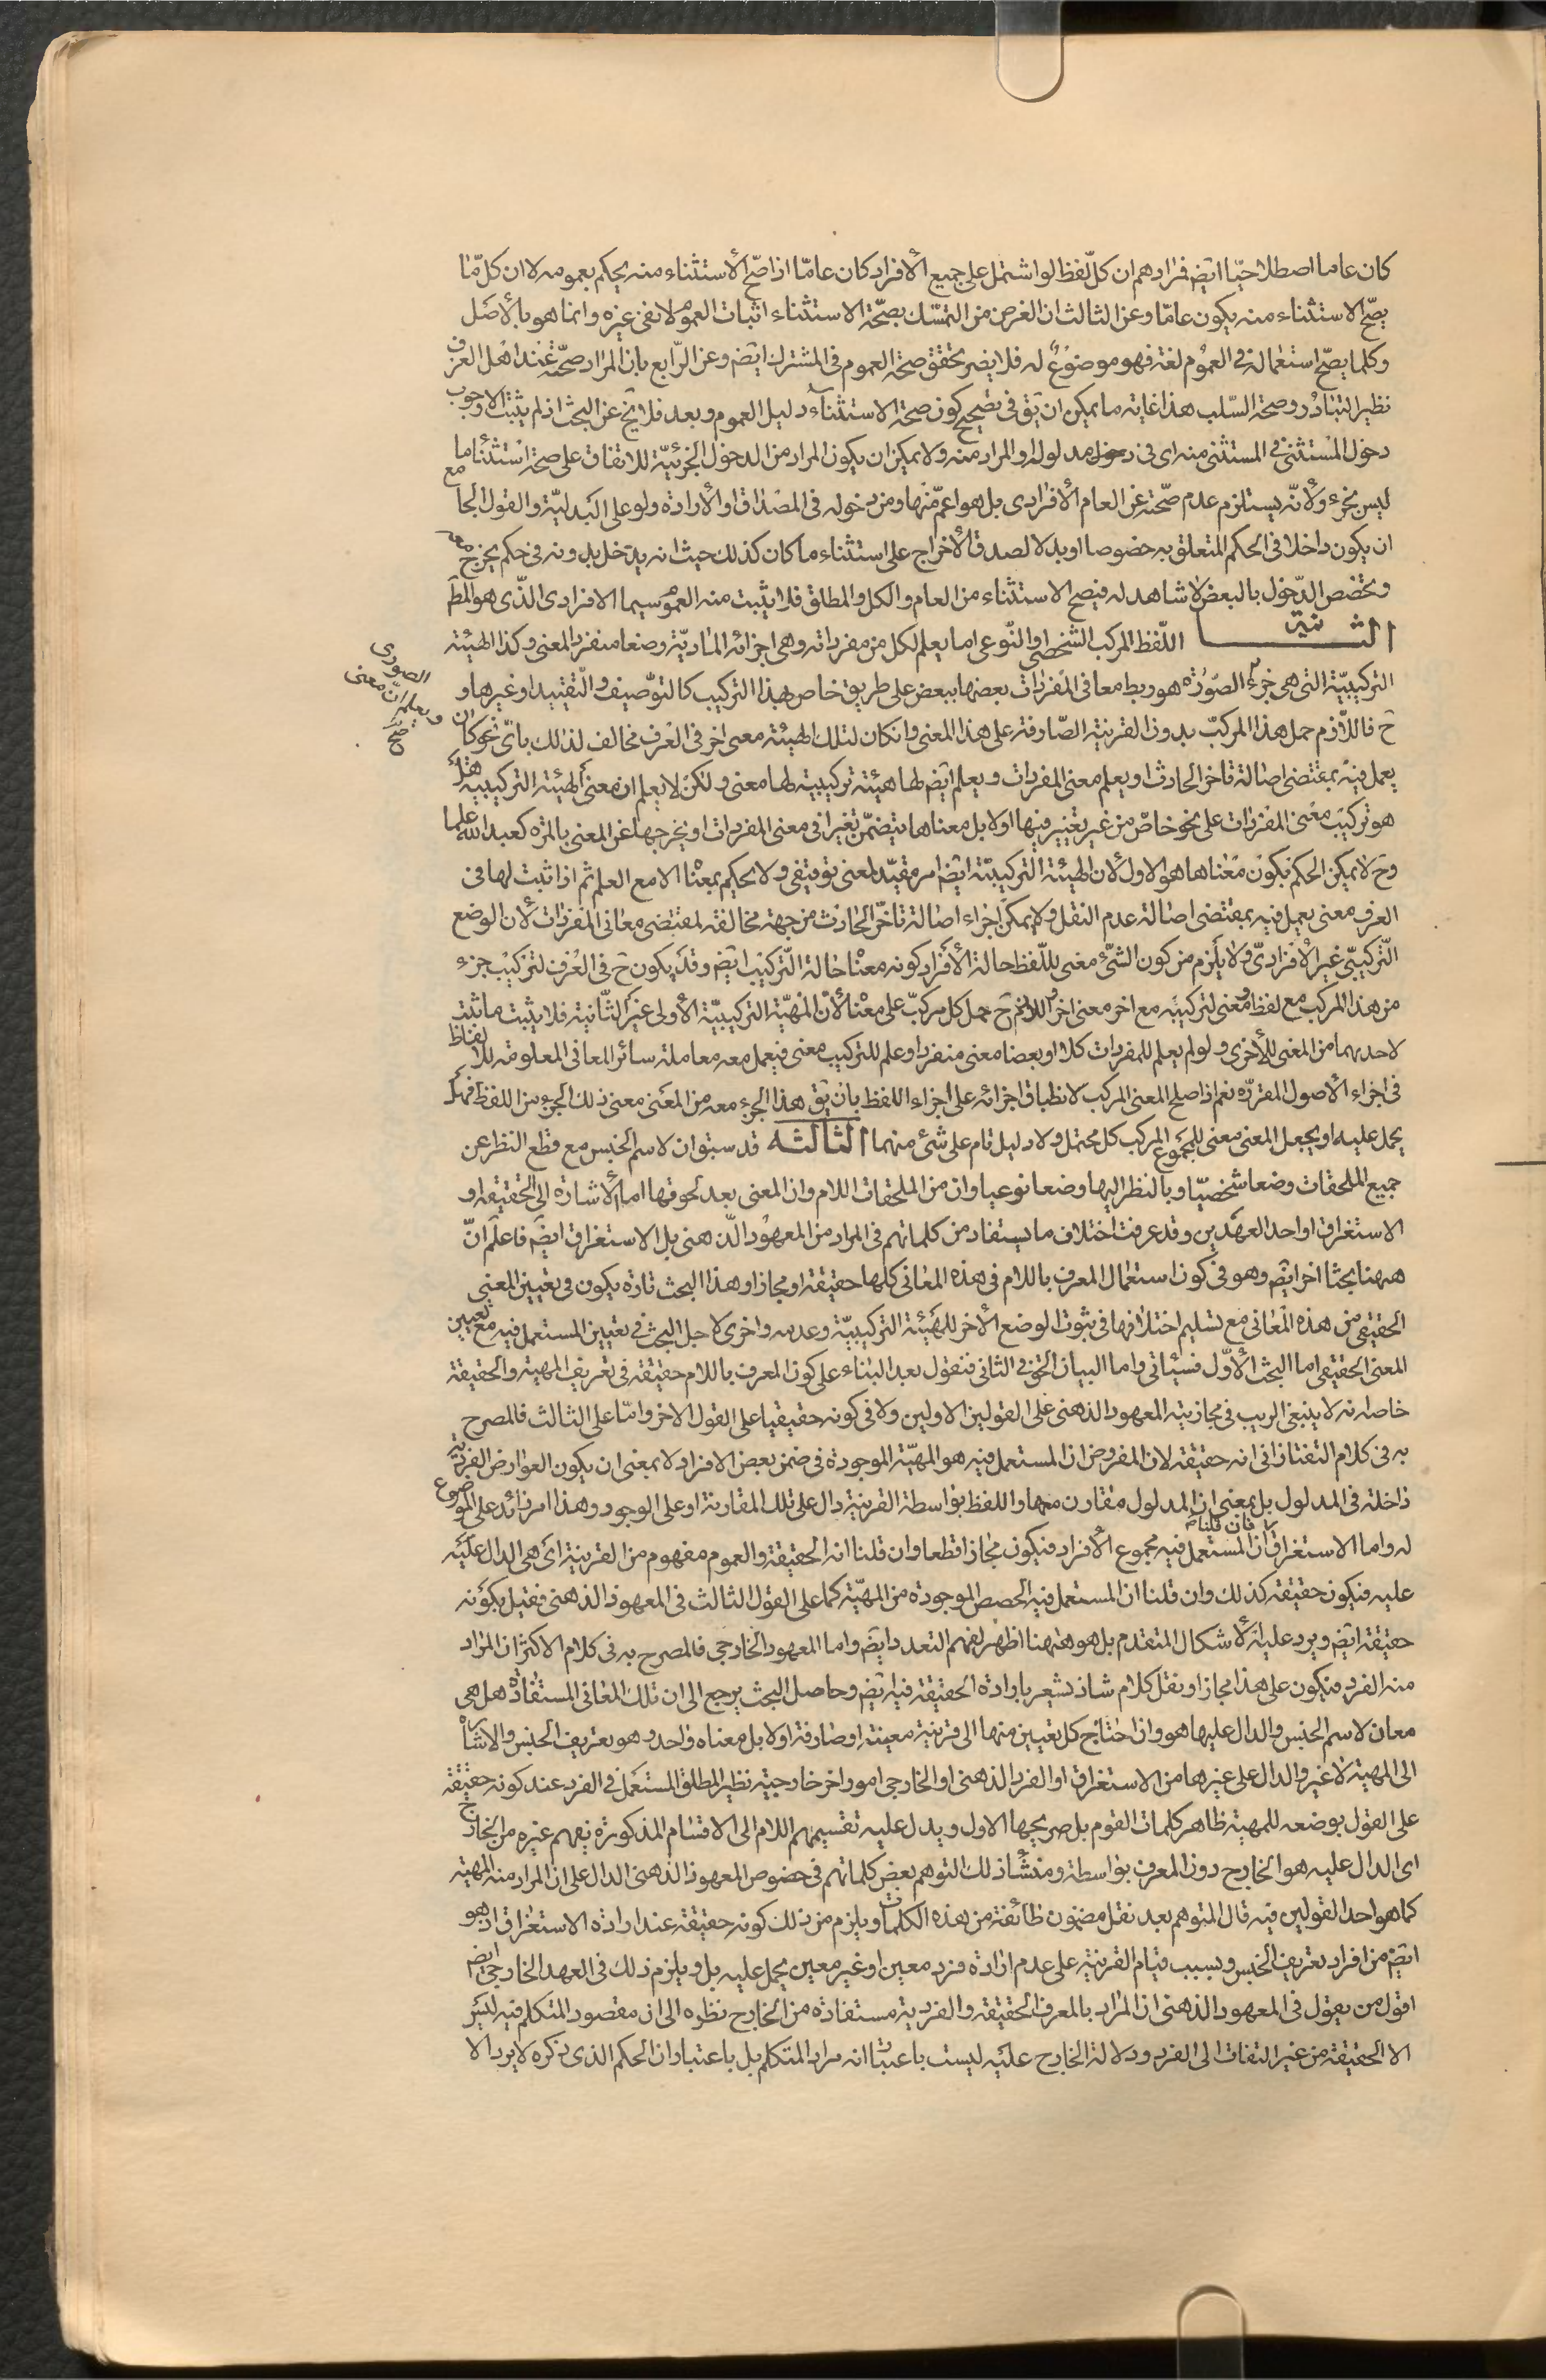 كان عاما اصطلاحيّا ايضم فمرادهم ان كلّ لفظ لو اشتمل على جميع الأفراد كان عامّا اذا صحّ الأستثناء منه يحكم بعمومه لا ان كل ما
يصحّ الاستثناء منه يكون عامّا وعن الثالث ان الغرض من التمسّك بصحّة الاستثناء اثبات العموم لا نفى غيره وانما هو بالأصل
وكلما يصحّ استعماله فى العموم لغة فهو موضوع له فلا يضر تحقق صحة العموم فى المشترك ايضم وعن الرّابع بان المراد صحّته عند اهل العرف
نظير التبادر وصحة السّلب هذا غاية ما يمكن ان يق فى تصحيح كون صحة الاستثناء دليل العموم وبعد فلا يخ عن البحث اذ لم يثبت الا وجوب
دخول المستثنى فى المستثنى منه اى فى دخوله مدلوله او المراد منه ولا يمكن ان يكون المراد من الدخول الجزئيّة للاتفاق على صحة استثناء ما
ليس بجزء ولأنّه يستلزم عدم صحّته عن العام الأفرادى بل هو اعمّ منها ومن دخوله فى المصداق او الأرادة ولو على البدليّة والقول بـ
ان يكون داخلا فى الحكم المتعلق به خصوصا او بدلا لصدق الأخراج على استثناء ما كان كذلك حيث انه يدخل بدونه فى حكم يخرج معه
وتخصص الدّخول بالبعض لا شاهد له فيصح الاستثناء من العام والكل والمطلق فلا يثبت منه العموم سيما الافرادى الّذى هو المطم
الثانية اللّفظ المركب الشخصى او النّوعى اما يعلم لكل من مفرداته وهى اجزائه الماديّة وضعا منفرد المعنى وكذا الهيئة
التركيبيّة التى هى جزئه الصّورة هو ربط معانى المفردات بعضها ببعض على طريق خاص بهذا التركيب كالتوصيف والتقييد او غيرها و
الصورى ويعلم ان معنى صح
ح فاللازم حمل هذا المركبّ بدون القرينة الصّارفة على هذا المعنى وان كان لتلك الهيئة معنى اخر فى العرف مخالف لذلك باىّ نحو كان
يعمل فيه بمقتضى اصالة تاخر الحادث او يعلم معنى المفردات ويعلم ايضم لها هيئة تركيبية لها معنى ولكن لا يعلم ان معنى الهيئة التركيبية هل
هو تركيب معنى المفردات على نحو خاصّ من غير تغيير فيها او لا بل معناها يتضمّن تغيرا فى معنى المفردات او يخرجها عن المعنى بالمرّه كعبد الله علما
وح لا يمكن الحكم بكون معناها هو الاول لأن الهيئة التركيبيّة ايضم امر مقيّد لمعنى توقيفى ولا يحكم بمعناه الا مع العلم ثم اذا ثبت لها فى
العرف معنى يعمل فيه بمقتضى اصالة عدم النقل ولا يمكن اجراء اصالة تاخّر الحادث من جهة مخالفته لمقتضى معانى المفردات لأن الوضع
التّركيبىّ غير الأفرادىّ ولا يلزم من كون الشّئ معنى للّفظ حالة الأفراد كونه معناه حالة التّركيب ايضم وقد يكون ح فى العرف لتركيب جزء
من هذا المركب مع لفظ معنى ولتركيبه مع اخر معنى اخر واللازم ح حمل كل مركبّ على معناه لأن الهيئة التركيبيّة الأولى غير الثّانية فلا يثبت ما ثبت
لاحديهما من المعنى للأخرى ولو لم يعلم للمفردات كلا او بعضا معنى منفردا وعلم للتركيب معنى فيعمل معه معاملة سائر المعانى المعلومة للالفاظ
فى اجراء الأصول المقررّه نعم اذا صلح المعنى المركب لانطباق اجزائه على اجزاء اللفظ بان يق هذا الجزء معه من المعنى معنى ذلك الجزء من اللفظ فهل
يحمل عليه او يجعل المعنى معنى للمجموع المركب كل محتمل ولا دليل تام على شئ منهما الثالثه قد سبق ان لاسم الجنس مع قطع النظر عن
جميع الملحقات وضعا شخصيّا وبالنظر اليها وضعا نوعيا وان من الملحقات اللام وان المعنى بعد لحوقها اما الأشارة الى الحقيقة او
الاستغراق او احد العهدين وقد عرفت اختلاف ما يستفاد من كلماتهم فى المراد من المعهود الذهنى بل الاستغراق ايضم فاعلم انّ
ههنا بحثا اخر ايضم وهو فى كون استعمال المعرف باللام فى هذه المعانى كلها حقيقة او مجازا وهذا البحث تارة يكون فى تعيين المعنى
الحقيقى من هذه المعانى مع تسليم اختلافها فى ثبوت الوضع الأخر للهيئة التركيبيّة وعدمه واخرى لاجل البحث فى تعيين المستعمل فيه مع تعيين
المعنى الحقيقى اما البحث الأوّل فسيأتى واما البيان الحق فى الثانى فنقول بعد البناء على كون المعرف باللام حقيقة فى تعريف المهية والحقيقة
خاصة انه لا ينبغى الريب فى مجازيته المعهود الذهنى على القولين الاولين ولا فى كونه حقيقيا على القول الاخر وامّا على الثالث فالمصرح
به فى كلام التفتازانى انه حقيقة لان المفروض ان المستعمل فيه هو المهيّة الموجودة فى ضمن بعض الافراد لا بمعنى ان يكون العوارض الفردية
داخلة فى المدلول بل بمعنى ان المدلول مقارن معها واللفظ بواسطة القرينة دال على تلك المقارنة او على الوجود وهذا امر زائد على الموضوع
له واما الاستغراق فان قلنا ان المستعمل فيه مجموع الأفراد فيكون مجازا قطعا وان قلنا انه الحقيقة والعموم مفهوم من القرينة اى هى الدال عليه
عليه فيكون حقيقة كذلك وان قلنا ان المستعمل فيه الحصص الموجودة من المهيّة كما على القول الثالث فى المعهود الذهنى فقيل بكونه
حقيقة ايضم ويرد عليه الأشكال المتقدم بل هو ههنا اظهر لفهم التعدد ايضم واما المعهود الخارجى فالمصرح به فى كلام الاكثر ان المراد
منه الفرد فيكون على هذا مجازا ونقل كلام شاذ يشعر بارادة الحقيقة فيه ايضم وحاصل البحث يرجع الى ان تلك المعانى المستفادة هل هى
معان لاسم الجنس والدال عليها هو وان احتاج كل تعيين منها الى قرينة معينة او صارفة او لا بل معناه واحد وهو تعريف الجنس والاشارة
الى المهية لا غير والدال على غيرها من الاستغراق او الفرد الذهنى او الخارجى امور اخر خارجية نظير المطلق المستعمل فى الفرد عند كونه حقيقة
على القول بوضعه للمهية ظاهر كلمات القوم بل صريحها الاول ويدل عليه تقسيمهم اللام الى الاقسام المذكورة بفهم غيره من الخارج
اى الدال عليه هو الخارج دون المعرف بواسطة ومنشأ ذلك التوهم بعض كلماتهم فى خصوص المعهود الذهنى الدال على ان المراد منه المهية
كما هو احد القولين فيه قال المتوهم بعد نقل مضمون طائفة من هذه الكلمات ويلزم من ذلك كونه حقيقة عند ارادة الاستغراق اذ هو
ايضم من افراد تعريف الجنس وبسبب قيام القرينة على عدم ارادة فرد معين او غير معين يحمل عليه بل ويلزم ذلك فى العهد الخارجى ايضم
اقول من يقول فى المعهود الذهنى ان المراد بالمعرف الحقيقة والفردية مستفادة من الخارج نظره الى ان مقصود المتكلم فيه ليس
الا الحقيقة من غير التفات الى الفرد ودلالة الخارج عليه ليست باعتبار انه مراد المتكلم بل باعتبار ان الحكم الذى ذكره لا يرد الا